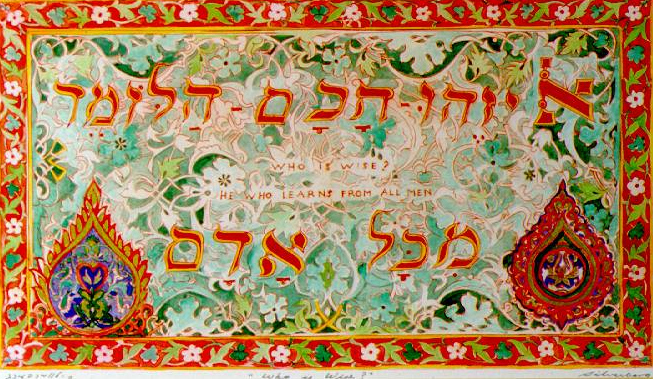 אֵיזֶהוּ-חָכָם-הַלוֹמֵד
WHO IS WISE?
HE WHO LEARNS FROM ALL MEN
מִכָּל אָדָם
"Who is Wise?"